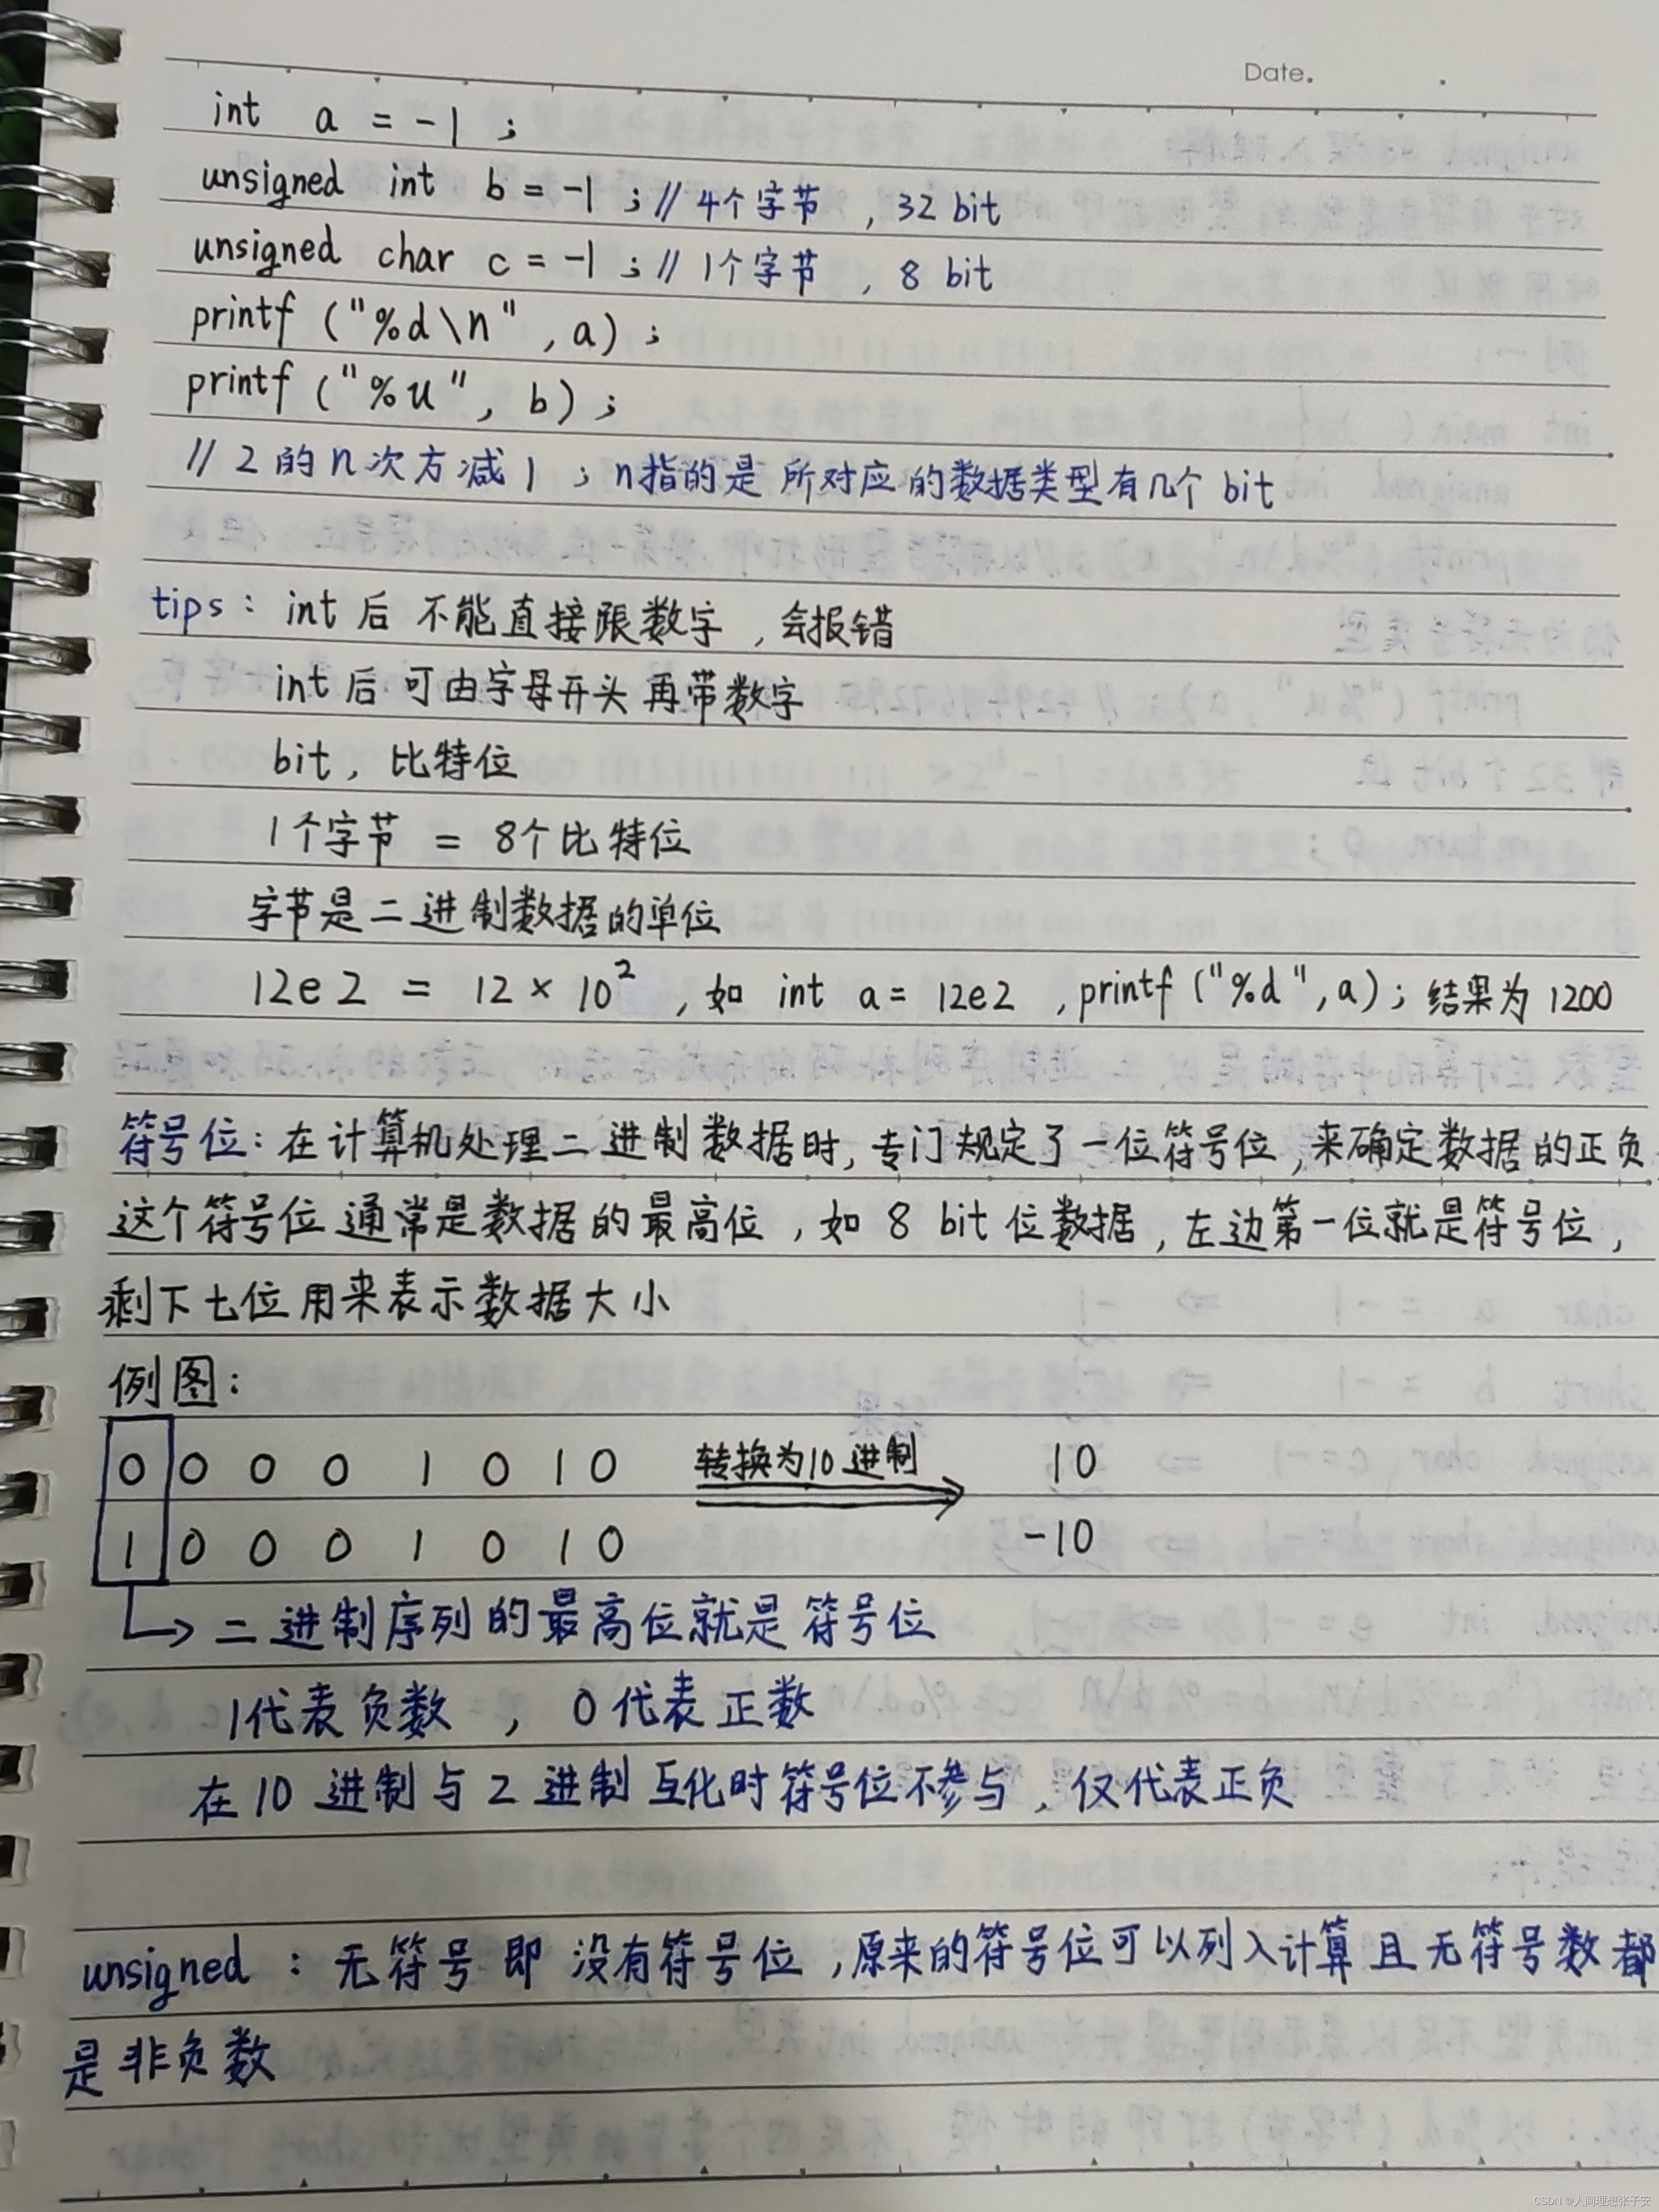 Date.
int a = -1 ;
unsigned int b = -1 ; // 4个字节 , 32 bit
unsigned char c = -1 ; // 1个字节 , 8 bit
printf ("%d\n" , a) ;
printf ("%u" , b) ;
// 2 的 n 次方减 1 ; n指的是 所对应的数据类型有几个 bit
tips : int 后 不能直接跟数字 , 会报错
int 后 可由字母开头 再带数字
bit , 比特位
1个字节 = 8个比特位
字节是二进制数据的单位
12e2 = 12 × 10² , 如 int a = 12e2 , printf ("%d" , a) ; 结果为 1200
符号位 : 在计算机处理二进制数据时, 专门规定了一位符号位 , 来确定数据的正负
这个符号位 通常是数据的最高位 , 如 8 bit 位数据 , 左边第一位就是符号位 ,
剩下七位用来表示数据大小
例图 :
0 0 0 0 1 0 1 0 转换为10进制 10
1 0 0 0 1 0 1 0 -10
二进制序列的最高位就是符号位
1代表负数 , 0代表正数
在10进制与2进制互化时符号位不参与 , 仅代表正负
unsigned : 无符号 即 没有符号位 , 原来的符号位可以列入计算 且 无符号数都
是非负数
CSDN @人间理想张子安